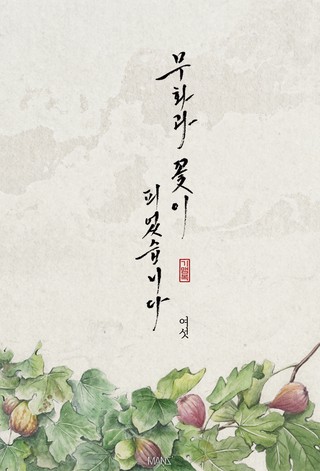 무화과 꽃이
피었습니다
여섯
MANS